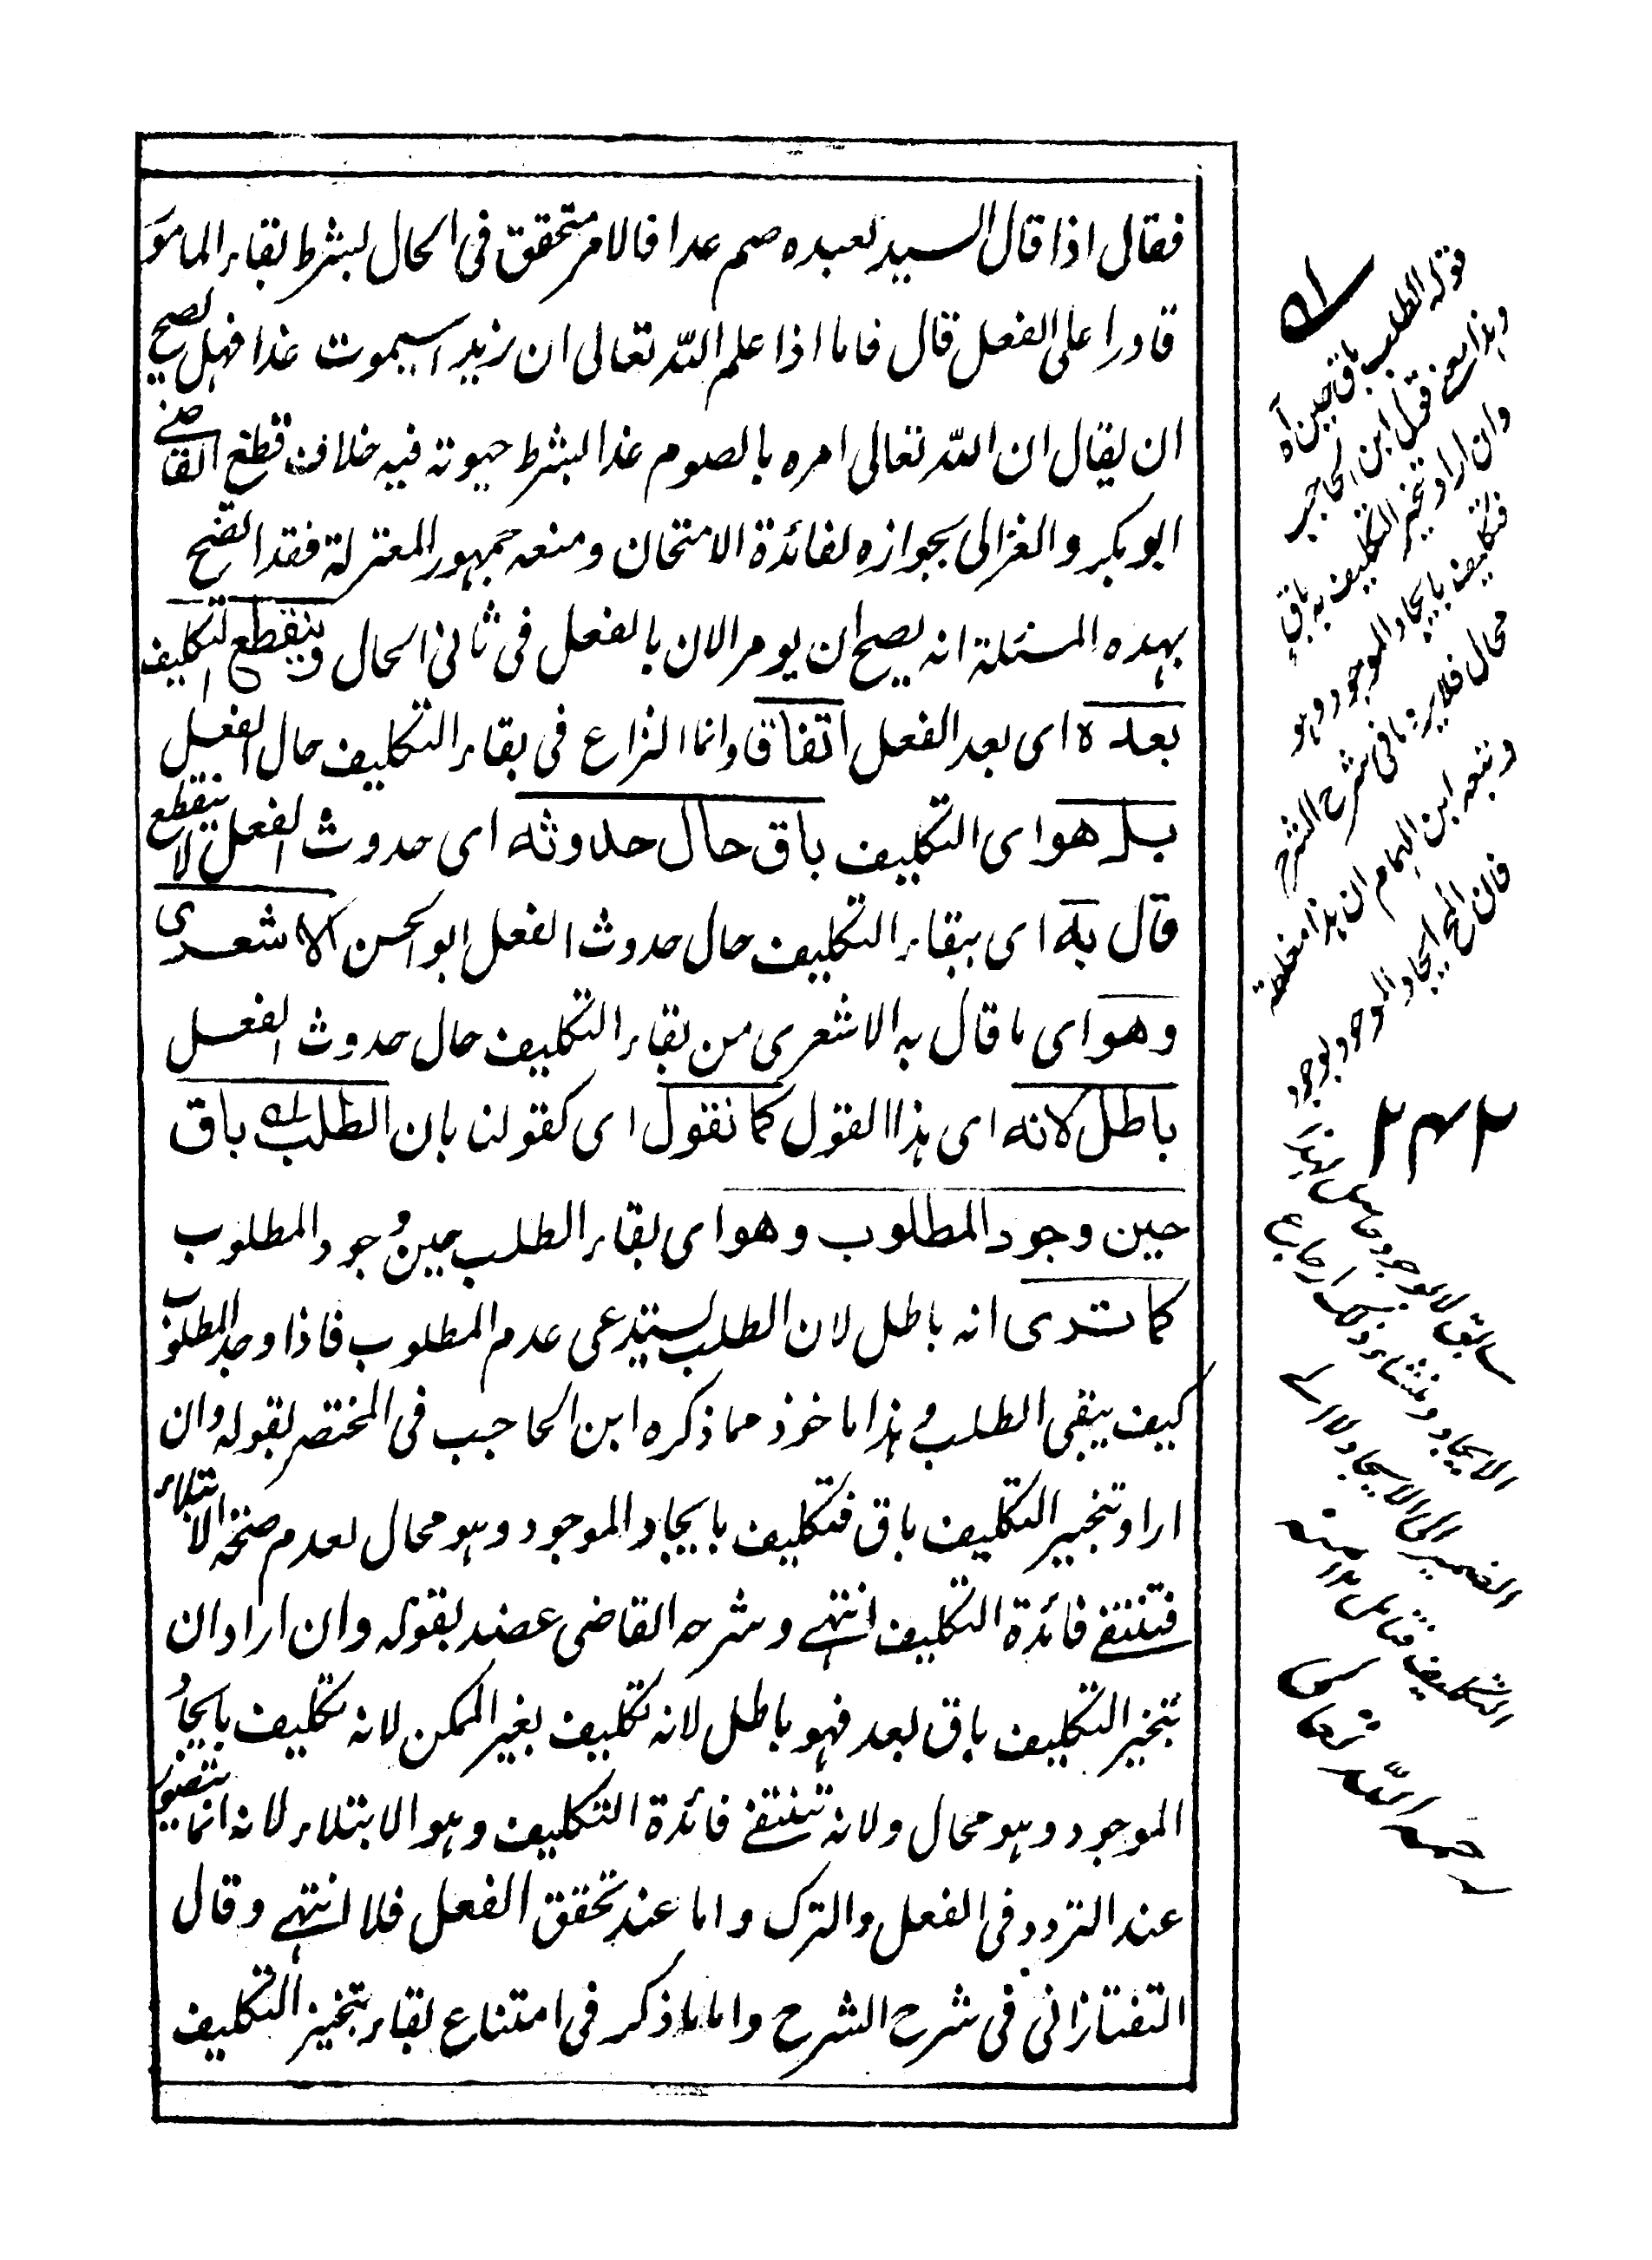 فقال اذا قال السيد لعبده صم غدا فالامر متحقق فى الحال بشرط بقاء المامور
قادرا على الفعل قال فاما اذا علم الله تعالى ان زيدا سيموت غدا فهل يصح
ان يقال ان الله تعالى امره بالصوم غدا بشرط حيوته فيه خلاف قطع القاضي
ابو بكر والغزالى بجوازه لفائدة الامتحان ومنعه جمهور المعتزلة فقد اتضح
بهذه المسئلة انه يصح ان يومر الان بالفعل فى ثانى الحال وينقطع التكليف
بعده اى بعد الفعل اتفاقا وانما النزاع فى بقاء التكليف حال الفعل
بل هو اى التكليف باق حال حدوثه اى حدوث الفعل لا ينقطع
قال به اى ببقاء التكليف حال حدوث الفعل ابو الحسن الاشعرى
وهو اى ما قال به الاشعرى من بقاء التكليف حال حدوث الفعل
باطل لانه اى هذا القول كما نقول اى كقولنا بان الطلب باق
حين وجود المطلوب وهو اى بقاء الطلب حين وجود المطلوب
كما ترى انه باطل لان الطلب يستدعى عدم المطلوب فاذا وجد المطلوب
كيف يبقى الطلب وهذا ماخوذ مما ذكره ابن الحاجب فى المختصر بقوله وان
اراد تنجيز التكليف باق فتكليف بايجاد الموجود وهو محال لعدم صحة الابتلاء
فتنتفى فائدة التكليف انتهى وشرحه القاضى عضد بقوله وان اراد ان
تنجيز التكليف باق بعد فهو باطل لانه تكليف بغير الممكن لانه تكليف بايجاد
الموجود وهو محال ولانه تنتفى فائدة التكليف وهو الابتلاء لانه انما يتصور
عند التردد فى الفعل والترك واما عند تحقق الفعل فلا انتهى وقال
التفتازانى فى شرح الشرح واما ما ذكر فى امتناع بقاء تنجيز التكليف
قوله الطلب باق حين آه
وهذا معنى قول ابن الحاجب
وان اراد تنجيز التكليف به باق
فتكليف بايجاد الموجود وهو
محال فلا يرد ما فى شرح الشرح
وتبعه ابن الهمام ان هذا مغلطة
فان المحال ايجاد الموجود بوجود
سابق لا بوجود حاصل بهذا
الايجاد ومنشاؤه ارجاع
الضمير الى الايجاد لا الى
التكليف فتامل منه
رحمه الله تعالى